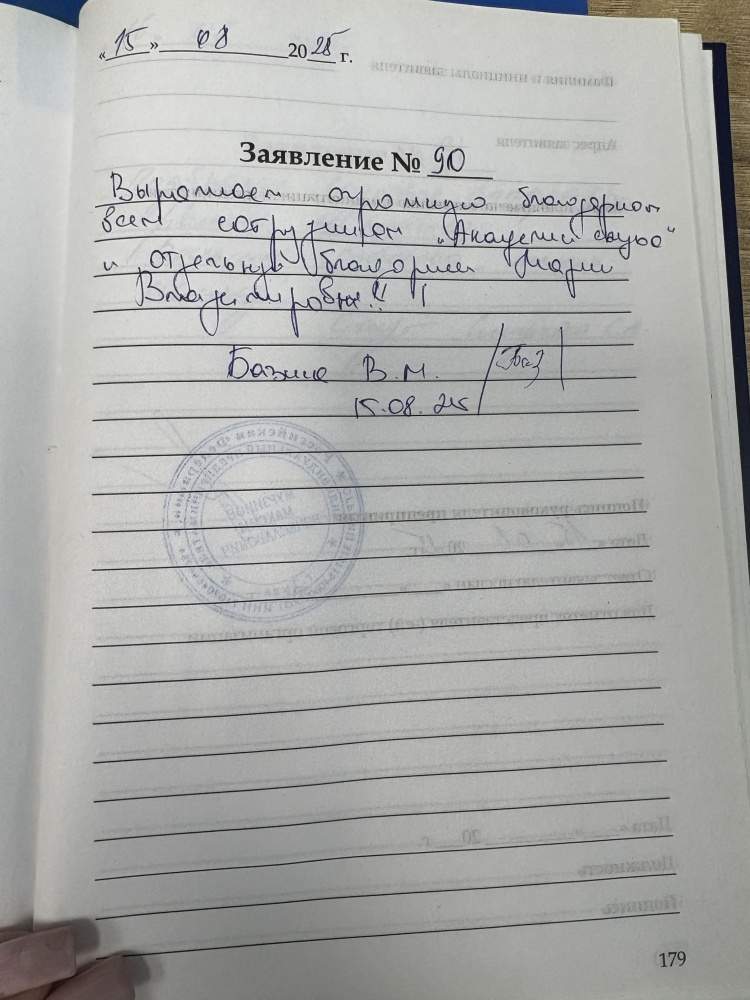 «15» 08 2025 г.
Заявление № 90
Выражаем огромную благодарност
всем сотрудникам „Академии слуха“
и отдельную благодарим Марии
Владимировне!! !
В. М.
15.08.25
179